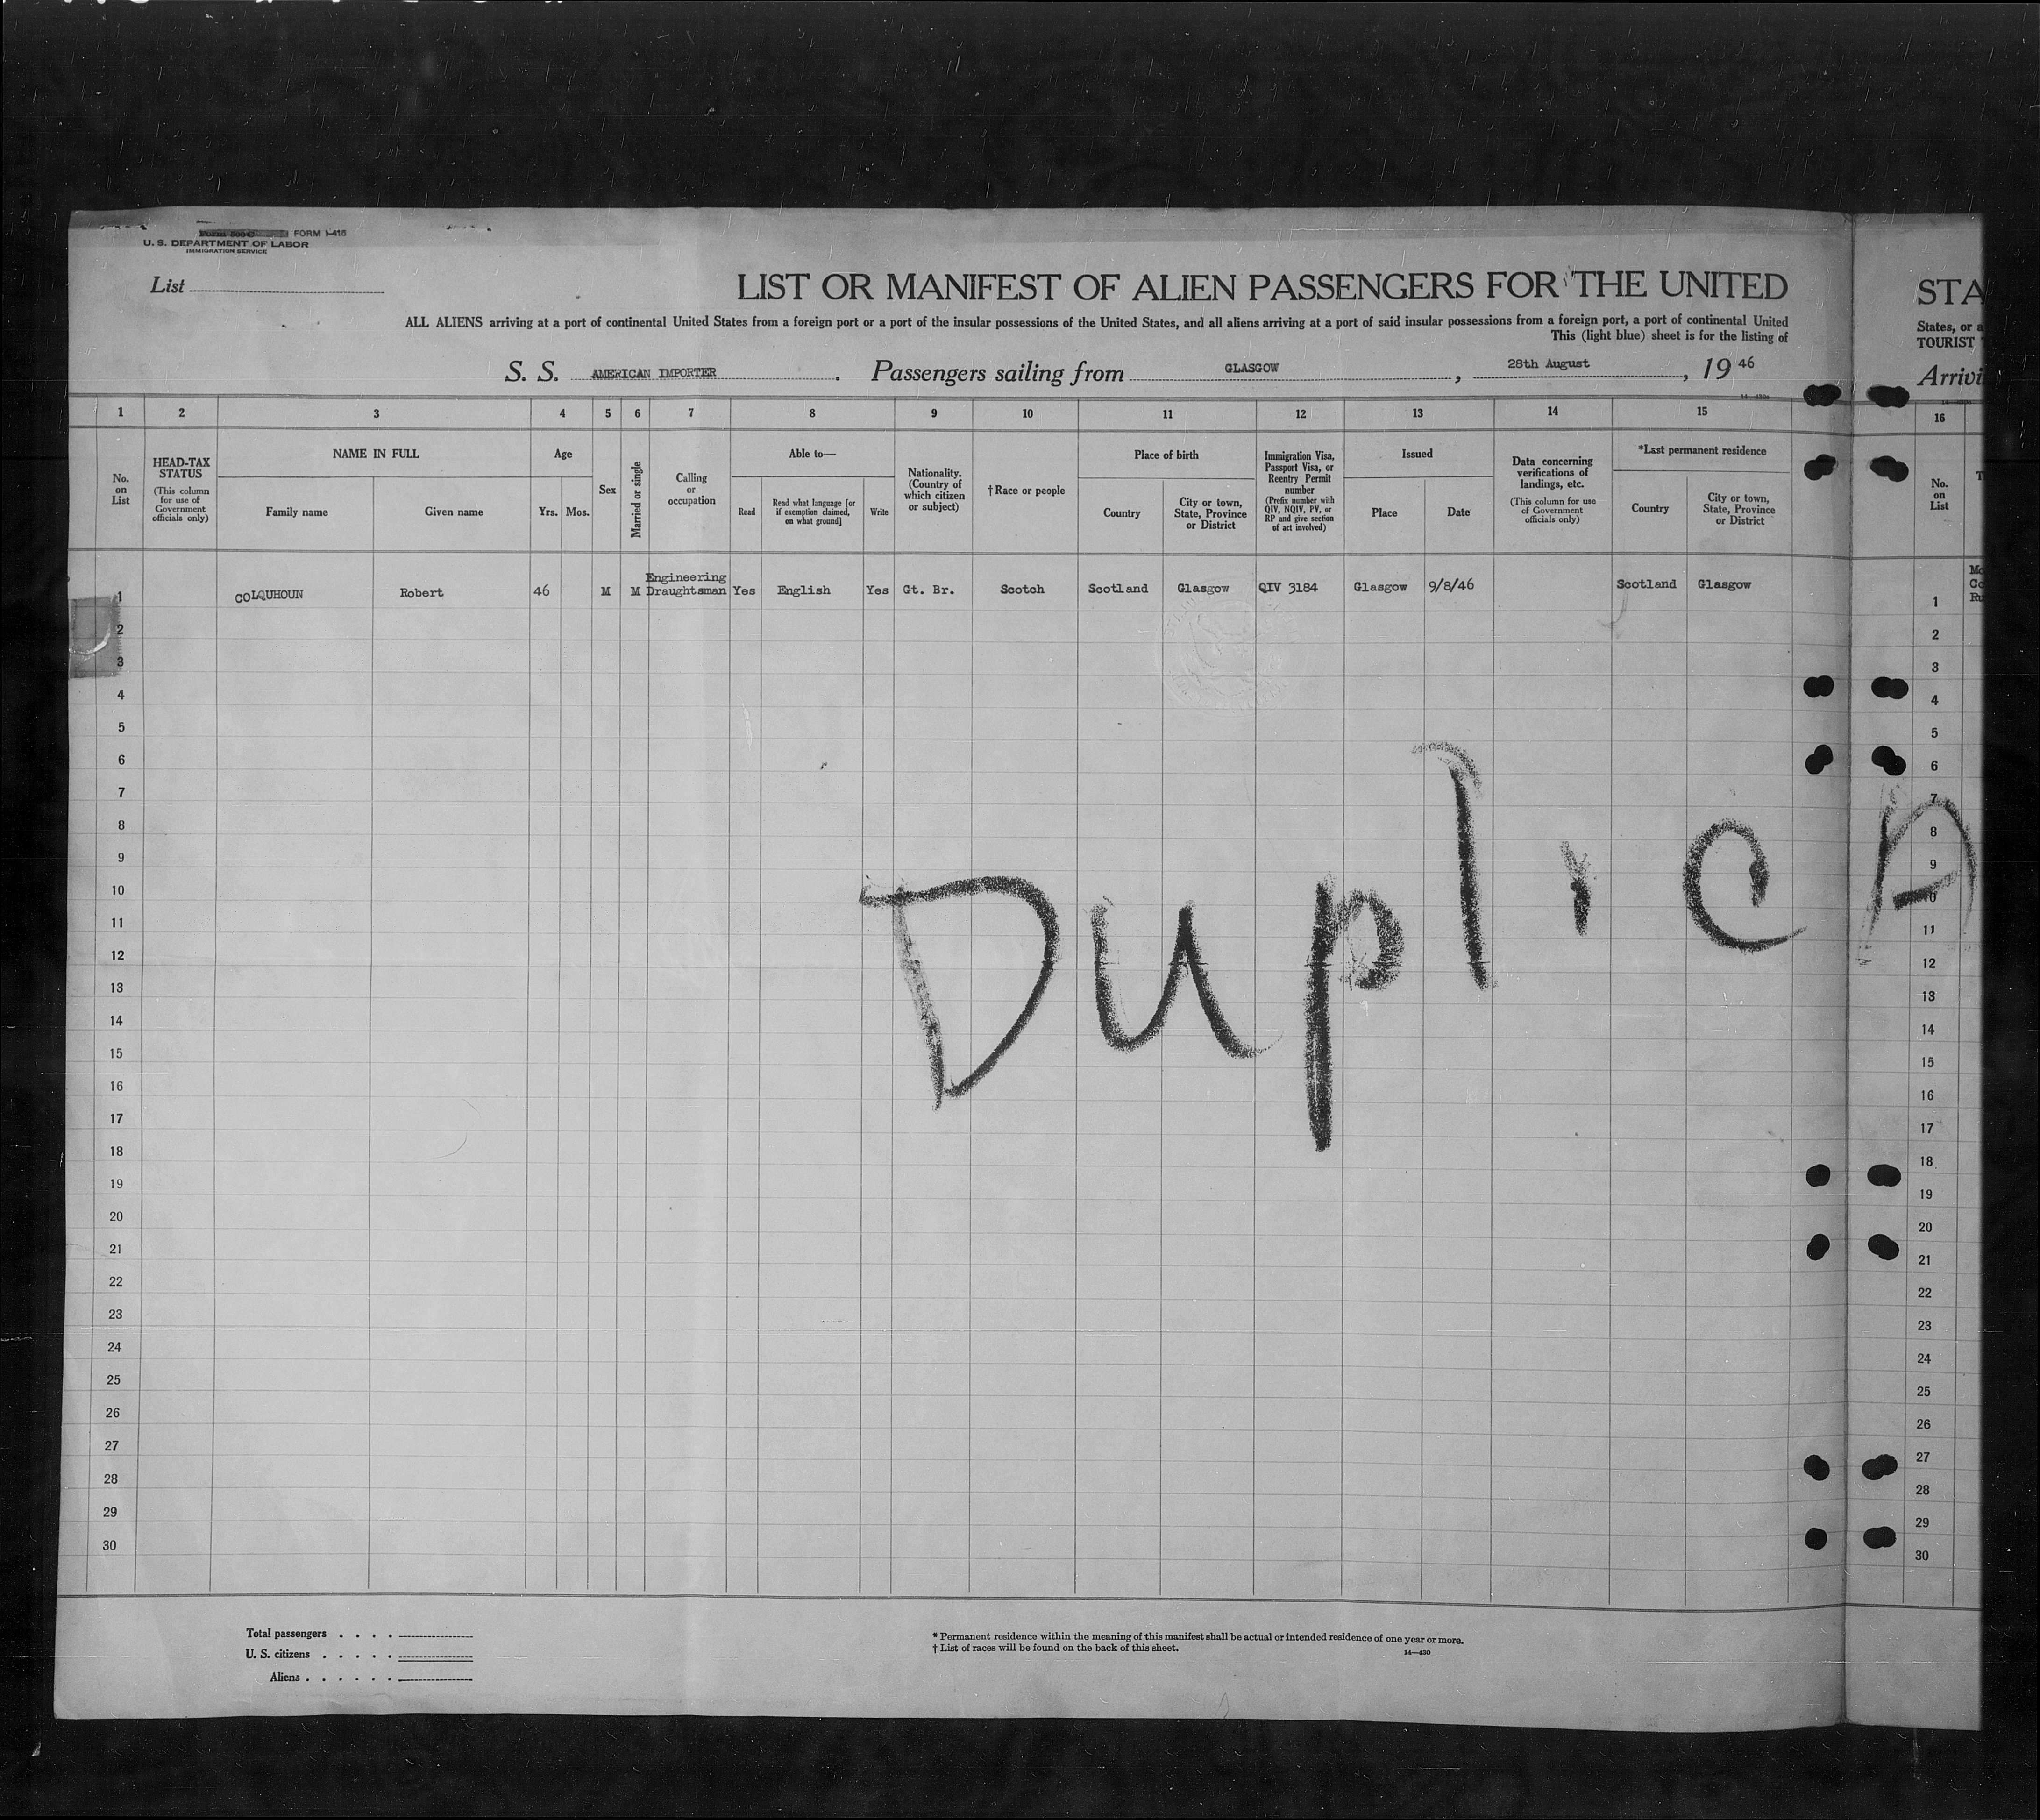 FORM I-416
U. S. DEPARTMENT OF LABOR
IMMIGRATION SERVICE
List
LIST OR MANIFEST OF ALIEN PASSENGERS FOR THE UNITED
STA
ALL ALIENS arriving at a port of continental United States from a foreign port or a port of the insular possessions of the United States, and all aliens arriving at a port of said insular possessions from a foreign port, a port of continental United
States, or a
This (light blue) sheet is for the listing of
TOURIST
S. S. AMERICAN IMPORTER. Passengers sailing from GLASGOW, 28th August, 19 46
Arrivi
14—430a
1 2 3 4 5 6 7 8 9 10 11 12 13 14 15 16
No. on List
HEAD-TAX STATUS
(This column for use of Government officials only)
NAME IN FULL
Family name
Given name
Age
Yrs. Mos.
Sex
Married or single
Calling or occupation
Able to—
Read
Read what language [or if exemption claimed, on what ground]
Write
Nationality. (Country of which citizen or subject)
†Race or people
Place of birth
Country
City or town, State, Province or District
Immigration Visa, Passport Visa, or Reentry Permit number
(Prefix number with QIV, NQIV, PV, or RP and give section of act involved)
Issued
Place
Date
Data concerning verifications of landings, etc.
(This column for use of Government officials only)
*Last permanent residence
Country
City or town, State, Province or District
No. on List
1 COLQUHOUN Robert 46 M M Engineering Draughtsman Yes English Yes Gt. Br. Scotch Scotland Glasgow QIV 3184 Glasgow 9/8/46 Scotland Glasgow 1
2 2
3 3
4 4
5 5
6 6
7 7
8 8
9 9
10 10
11 11
12 12
13 13
14 14
15 15
16 16
17 17
18 18
19 19
20 20
21 21
22 22
23 23
24 24
25 25
26 26
27 27
28 28
29 29
30 30
DuplicA
Total passengers . . . .
U. S. citizens . . . . .
Aliens . . . . . .
* Permanent residence within the meaning of this manifest shall be actual or intended residence of one year or more.
† List of races will be found on the back of this sheet.
14—430